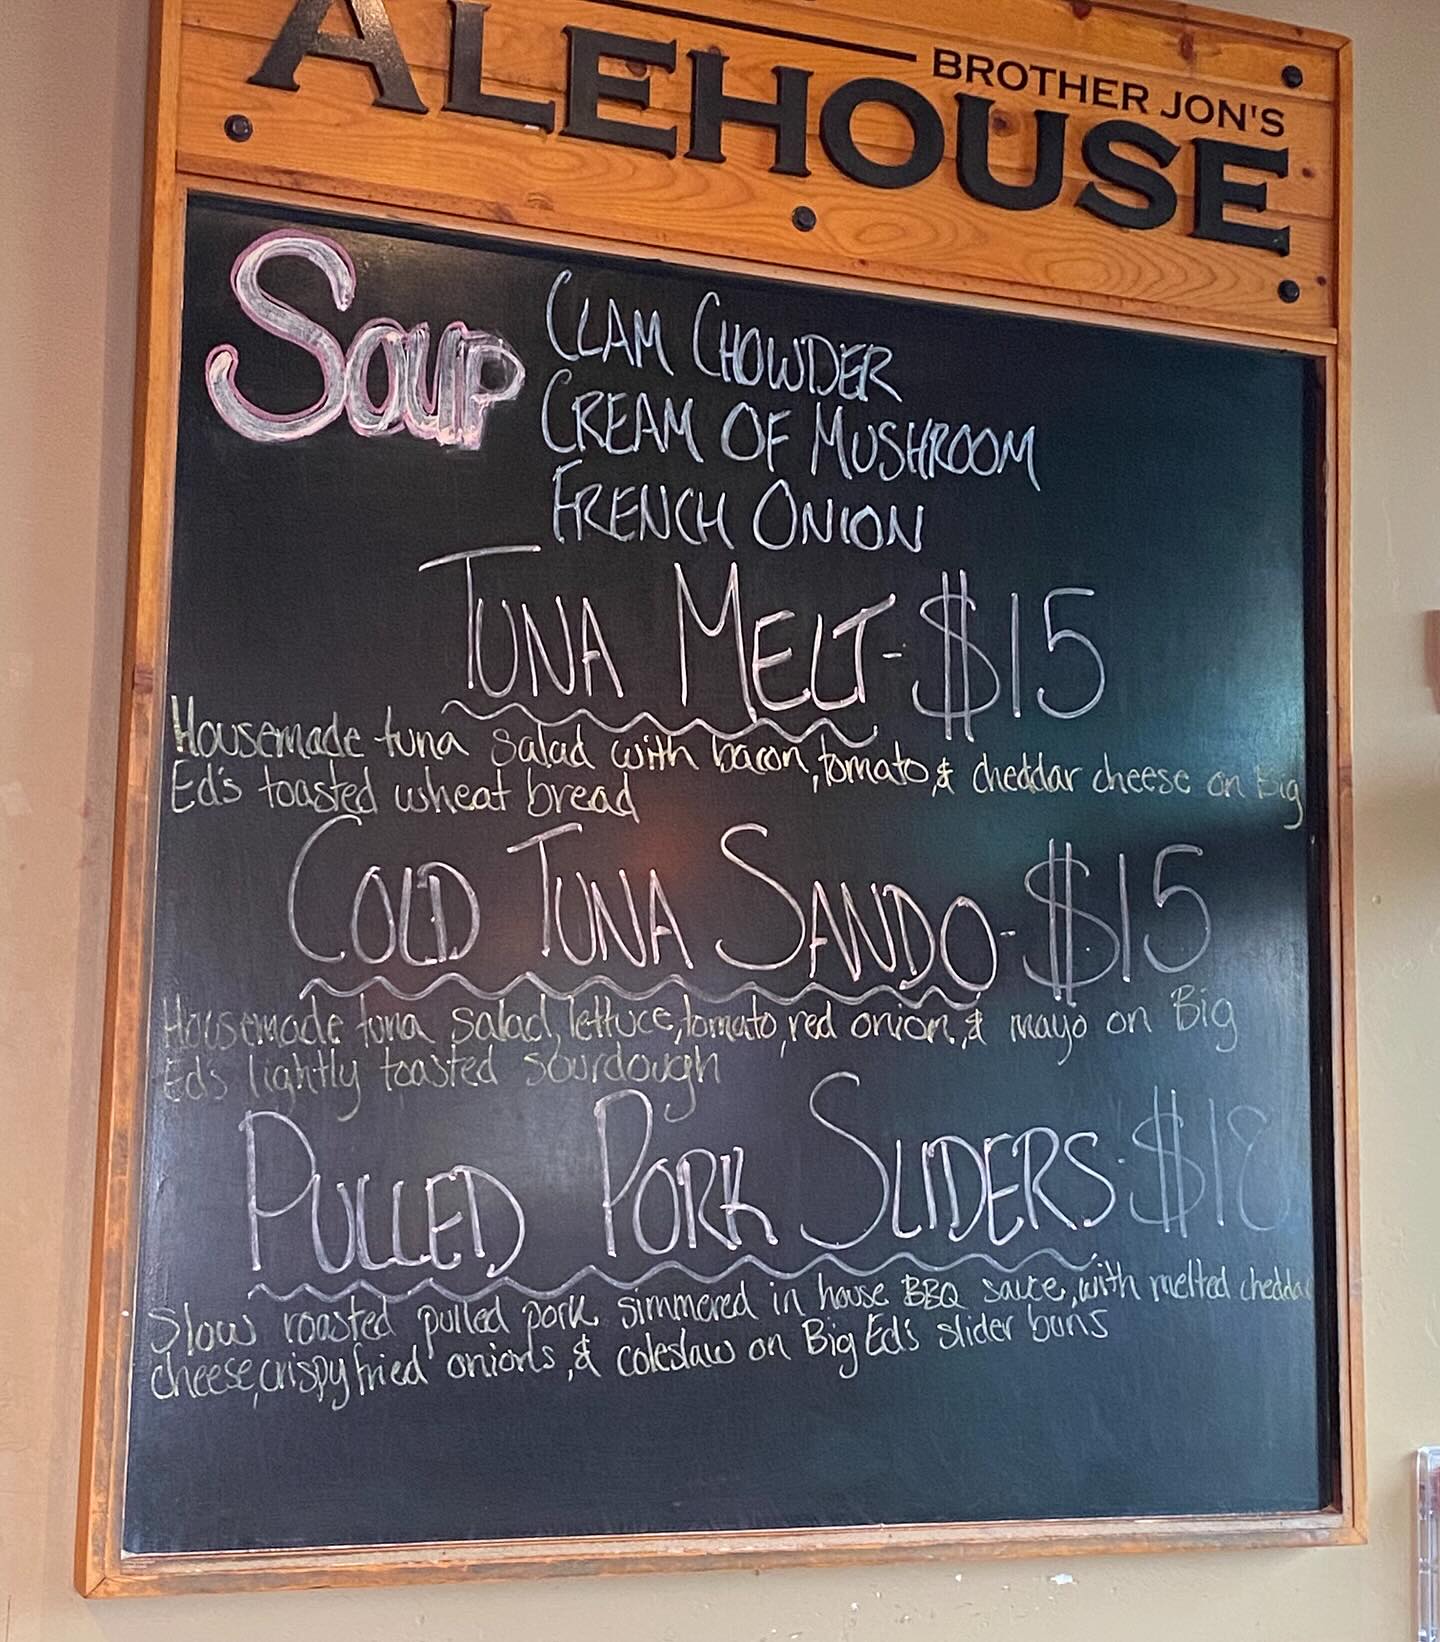 BROTHER JON'S
ALEHOUSE
SOUP
CLAM CHOWDER
CREAM OF MUSHROOM
FRENCH ONION
TUNA MELT-$15
Housemade tuna salad with bacon, tomato, & cheddar cheese on Big
Ed's toasted wheat bread
COLD TUNA SANDO-$15
Housemade tuna salad, lettuce, tomato, red onion, & mayo on Big
Ed's lightly toasted sourdough
PULLED PORK SLIDERS-$18
Slow roasted pulled pork simmered in house BBQ sauce, with melted cheddar
cheese, crispy fried onions, & coleslaw on Big Ed's slider buns